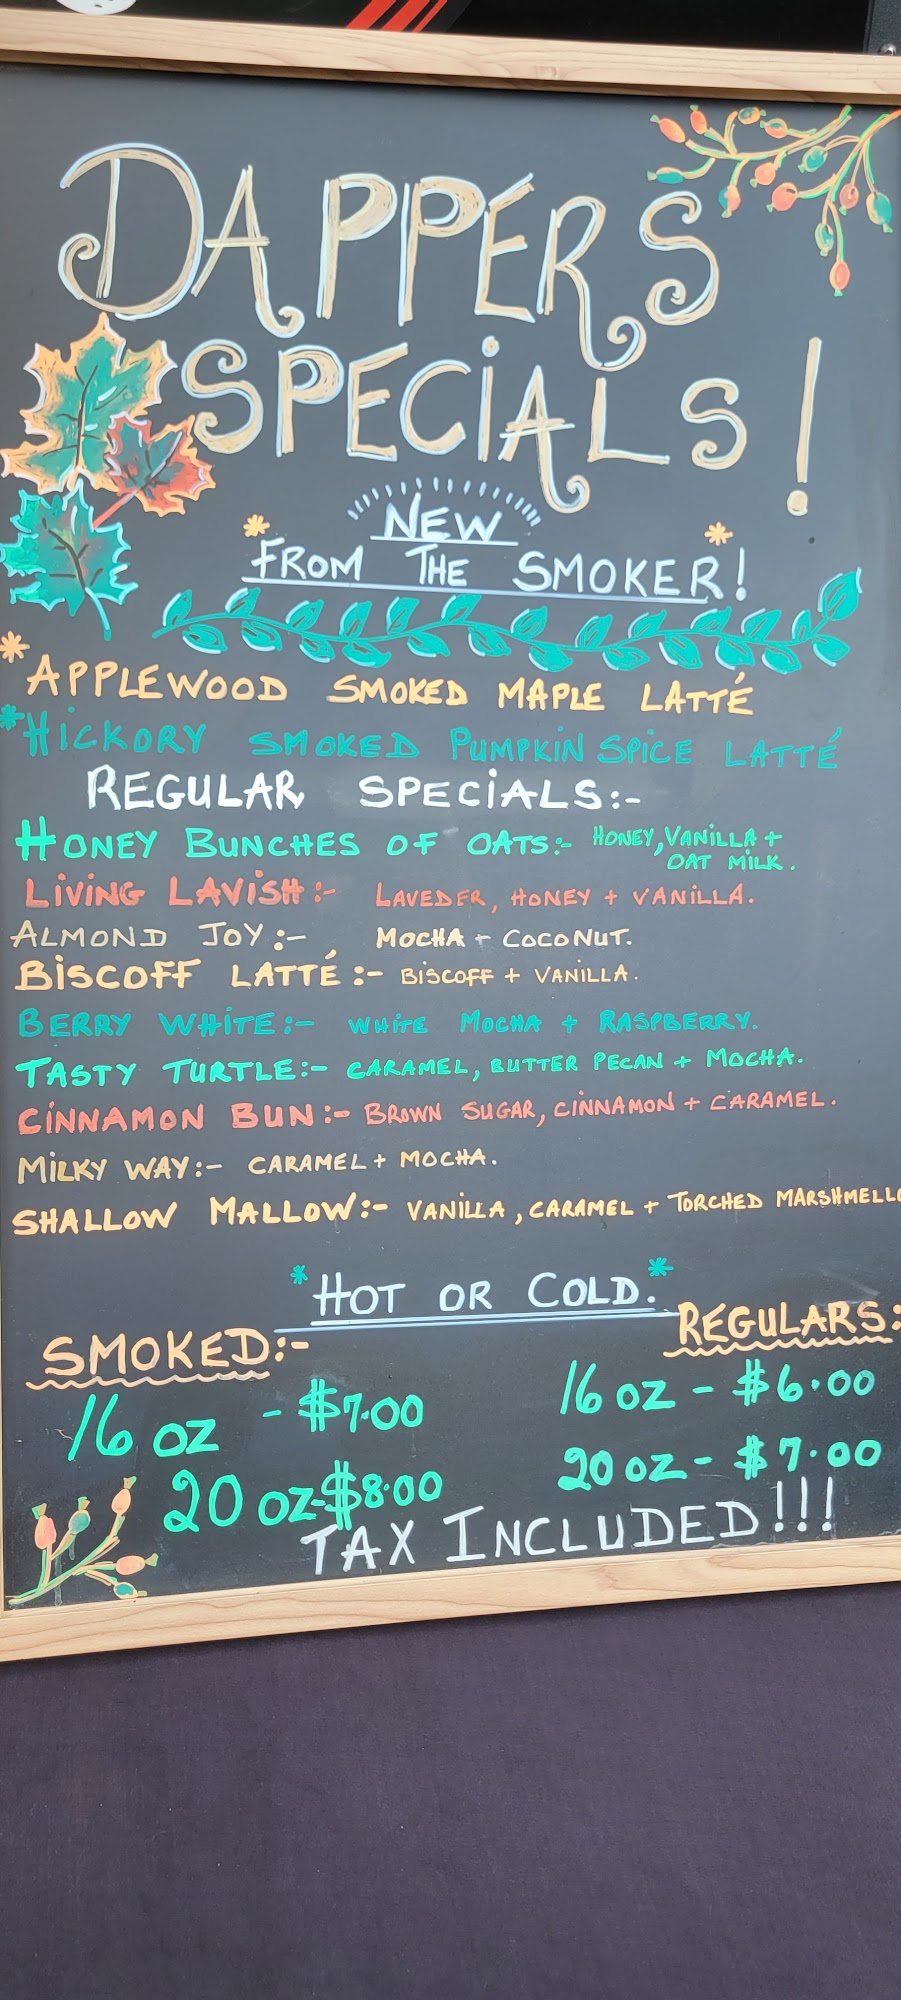 DAPPERS
SPECIALS!
NEW
FROM THE SMOKER!
*APPLEWOOD SMOKED MAPLE LATTÉ
*HICKORY SMOKED PUMPKIN SPICE LATTÉ
REGULAR SPECIALS:-
HONEY BUNCHES OF OATS:- HONEY, VANILLA +
OAT MILK.
LIVING LAVISH:- LAVEDER, HONEY + VANILLA.
ALMOND JOY:- MOCHA + COCONUT.
BISCOFF LATTÉ:- BISCOFF + VANILLA.
BERRY WHITE:- WHITE MOCHA + RASPBERRY.
TASTY TURTLE:- CARAMEL, BUTTER PECAN + MOCHA.
CINNAMON BUN:- BROWN SUGAR, CINNAMON + CARAMEL.
MILKY WAY:- CARAMEL + MOCHA.
SHALLOW MALLOW:- VANILLA, CARAMEL + TORCHED MARSHMELLO
*HOT OR COLD.*
SMOKED:-
16 oz - $7.00
20 oz - $8.00
REGULARS:
16 oz - $6.00
20 oz - $7.00
TAX INCLUDED!!!